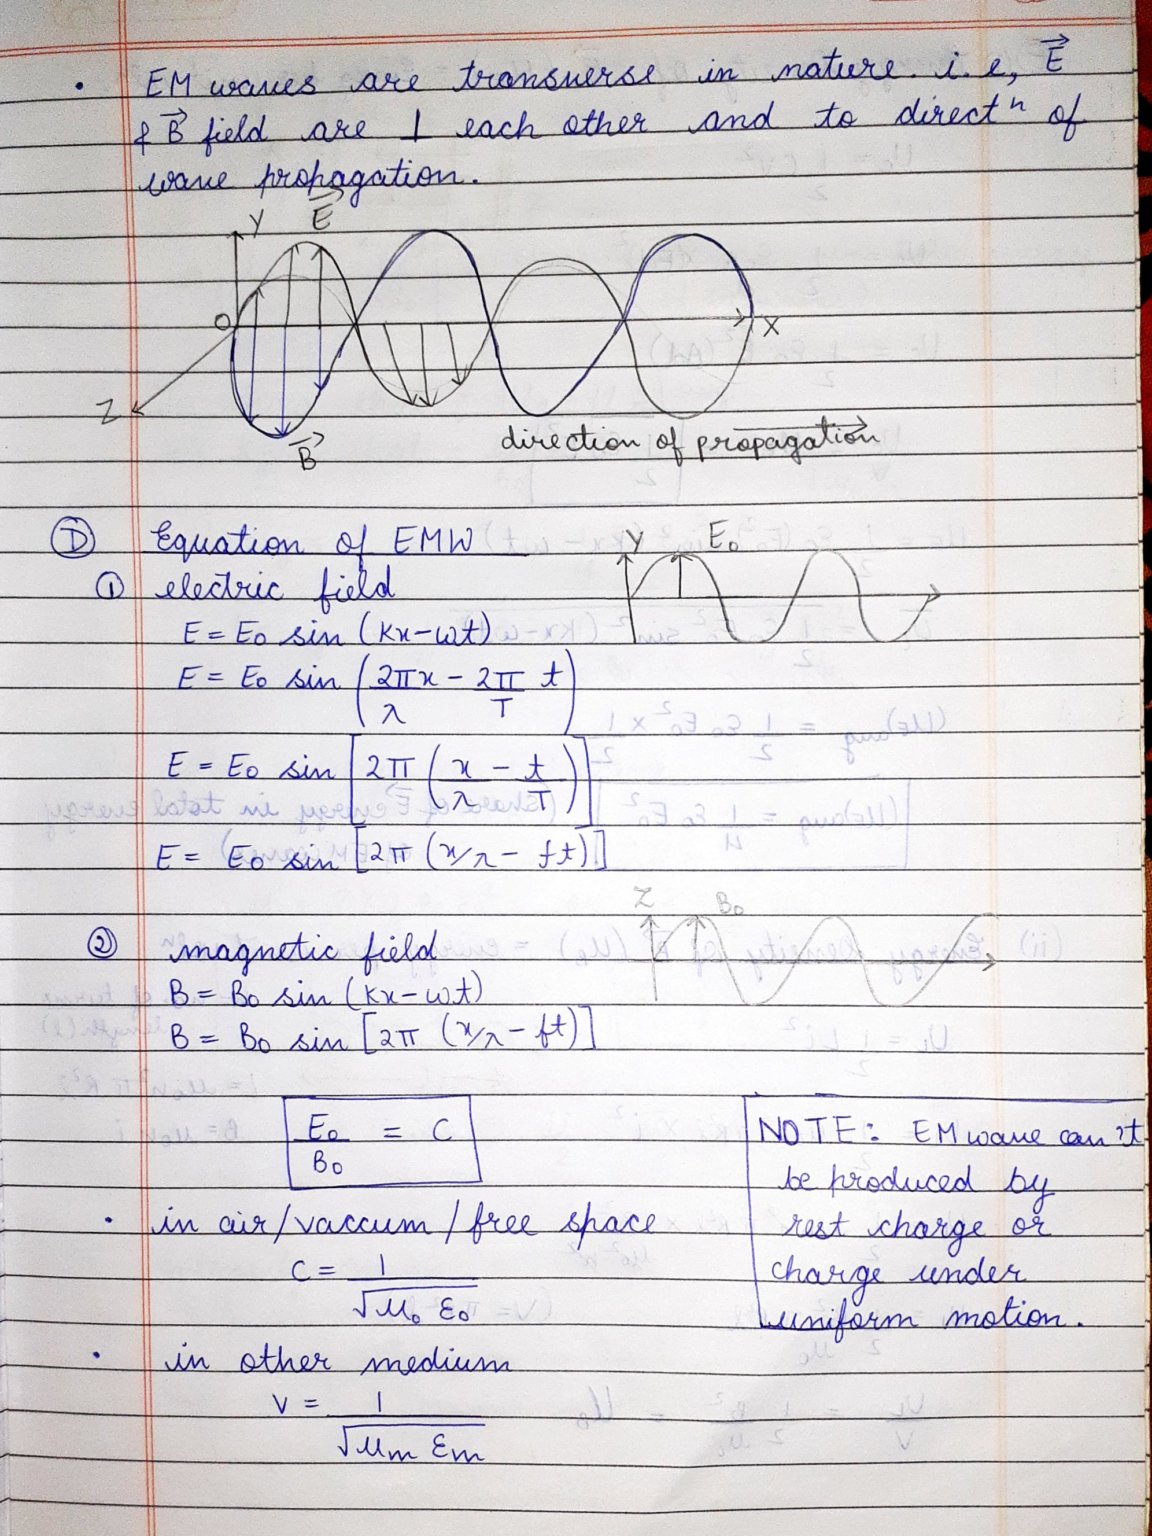 • EM waves are transverse in nature. i.e, E⃗
& B⃗ field are ⊥ each other and to directⁿ of
wave propagation.
Y E⃗
O X
Z
B⃗
direction of propagation
Ⓓ Equation of EMW
Y E₀
① electric field
E = E₀ sin (kx-ωt)
E = E₀ sin (2πx/λ - 2π/T t)
E = E₀ sin [2π (x/λ - t/T)]
E = E₀ sin [2π (x/λ - ft)]
Z B₀
② magnetic field
B = B₀ sin (kx-ωt)
B = B₀ sin [2π (x/λ - ft)]
E₀/B₀ = C
NOTE: EM wave can't
be produced by
rest charge or
charge under
uniform motion.
• in air/vaccum/free space
C = 1/√μ₀ ε₀
• in other medium
V = 1/√μm εm